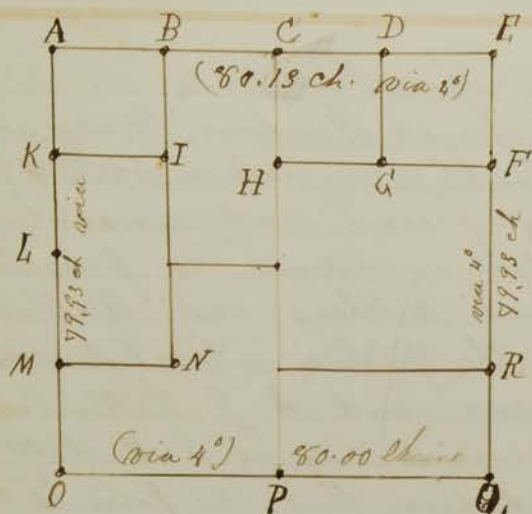 A B C D E
(80.13 ch. via 4°)
K I H G F
L
79.93 ch via
via 4°
79.93 ch
M N R
(via 4°) 80.00 chains
O P Q